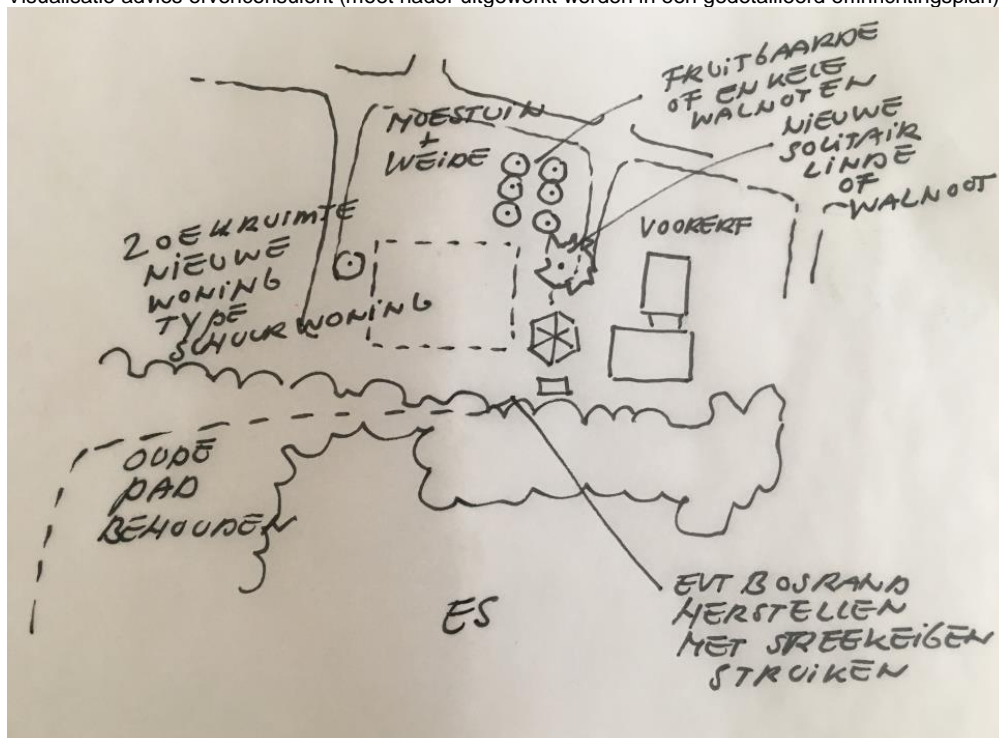 Visualisatie advies ervenconsulent (moet nader uitgewerkt worden in een gedetailleerd erfinrichtingsplan)
FRUITGAARDE
OF ENKELE
WALNOTEN
MOESTUIN
+
WEIDE
NIEUWE
SOLITAIR
LINDE
OF
WALNOOT
VOORERF
ZOEKRUIMTE
NIEUWE
WONING
TYPE
SCHUURWONING
OUDE
PAD
BEHOUDEN
ES
EVT BOSRAND
HERSTELLEN
MET STREEKEIGEN
STRUIKEN